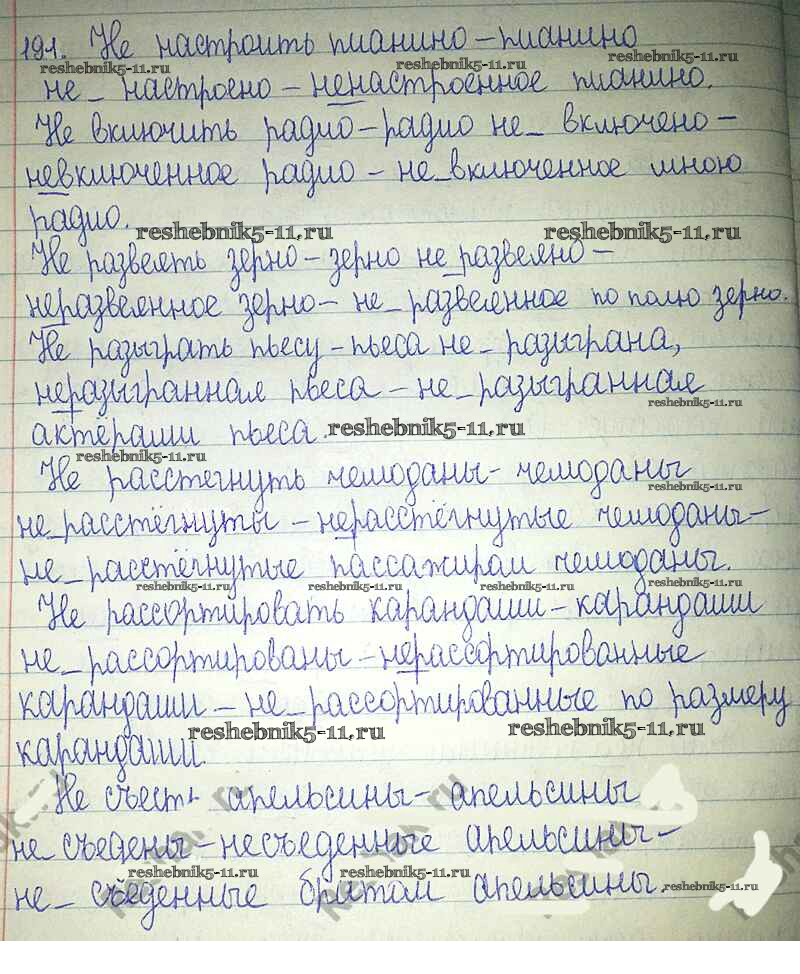 191. Не настроить пианино – пианино
reshebnik5-11.ru reshebnik5-11.ru reshebnik5-11.ru
не_ настроено – ненастроенное пианино.
Не включить радио – радио не_ включено –
невключенное радио – не_включенное мною
радио.
reshebnik5-11.ru reshebnik5-11.ru
Не развеять зерно – зерно не_развеяно –
неразвеянное зерно – не_ развеянное по полю зерно.
Не разыграть пьесу – пьеса не_ разыграна,
неразыгранная пьеса – не_ разыгранная
reshebnik5-11.ru
актерами пьеса. reshebnik5-11.ru
reshebnik5-11.ru
Не расстегнуть чемоданы – чемоданы
reshebnik5-11.ru
не_расстёгнуты – нерасстёгнутые чемоданы –
не_ расстёгнутые пассажирам чемоданы.
reshebnik5-11.ru reshebnik5-11.ru reshebnik5-11.ru reshebnik5-11.ru
Не рассортировать карандаши – карандаши
не_ рассортированы – нерассортированные
карандаши – не_ рассортированные по размеру
reshebnik5-11.ru reshebnik5-11.ru
карандаши.
Не съесть апельсины – апельсины
не_съедены – несъеденные апельсины –
reshebnik5-11.ru reshebnik5-11.ru reshebnik5-11.ru
не_ съеденные братом апельсины.